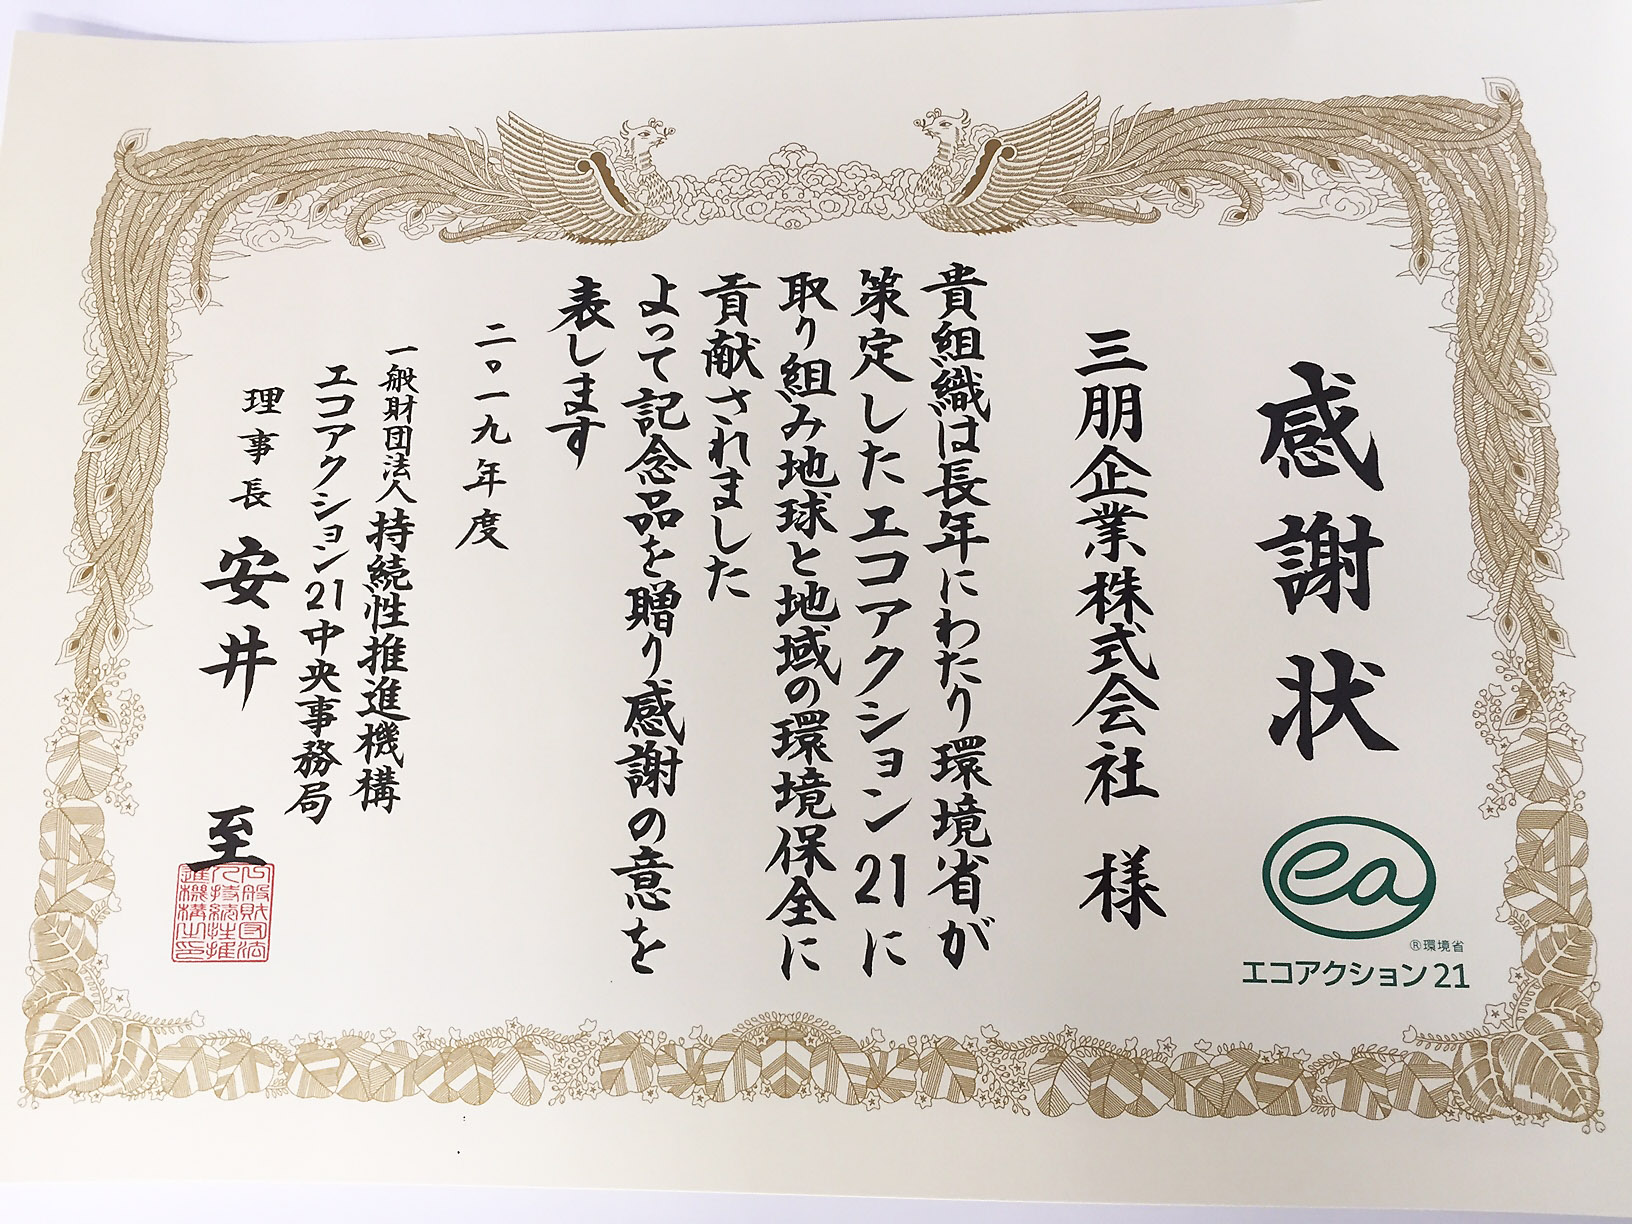 感謝状
三朋企業株式会社 様
貴組織は長年にわたり環境省が
策定したエコアクション21に
取り組み地球と地域の環境保全に
貢献されました
よって記念品を贈り感謝の意を
表します
二〇一九年度
一般財団法人持続性推進機構
エコアクション21中央事務局
理事長 安井 至
一般財団法人持続性推進機構之印
ea
®環境省
エコアクション21